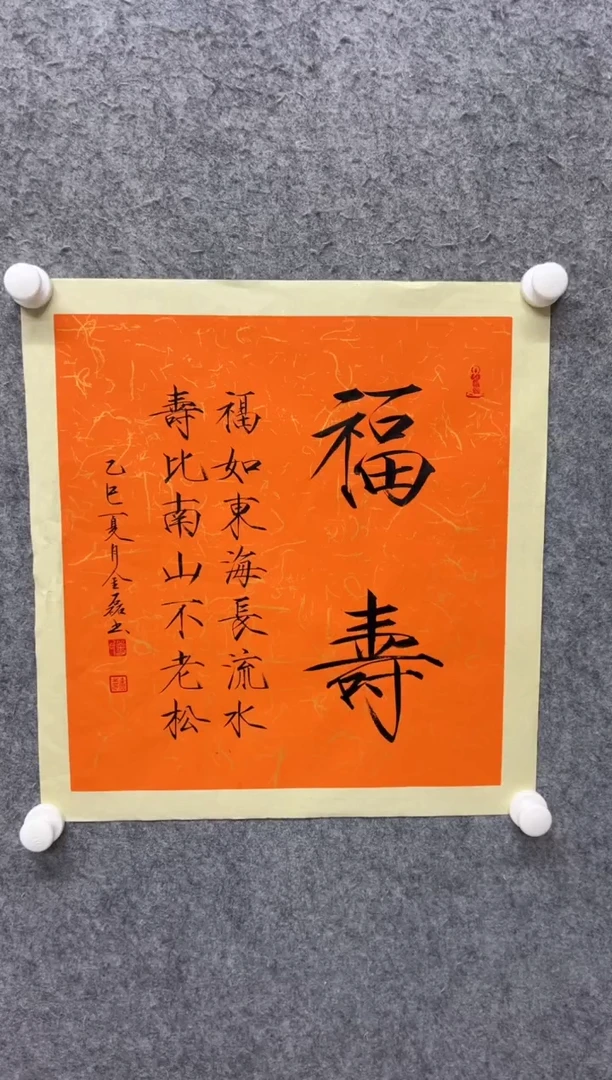 福壽
福如東海長流水
壽比南山不老松
乙巳夏月金磊书